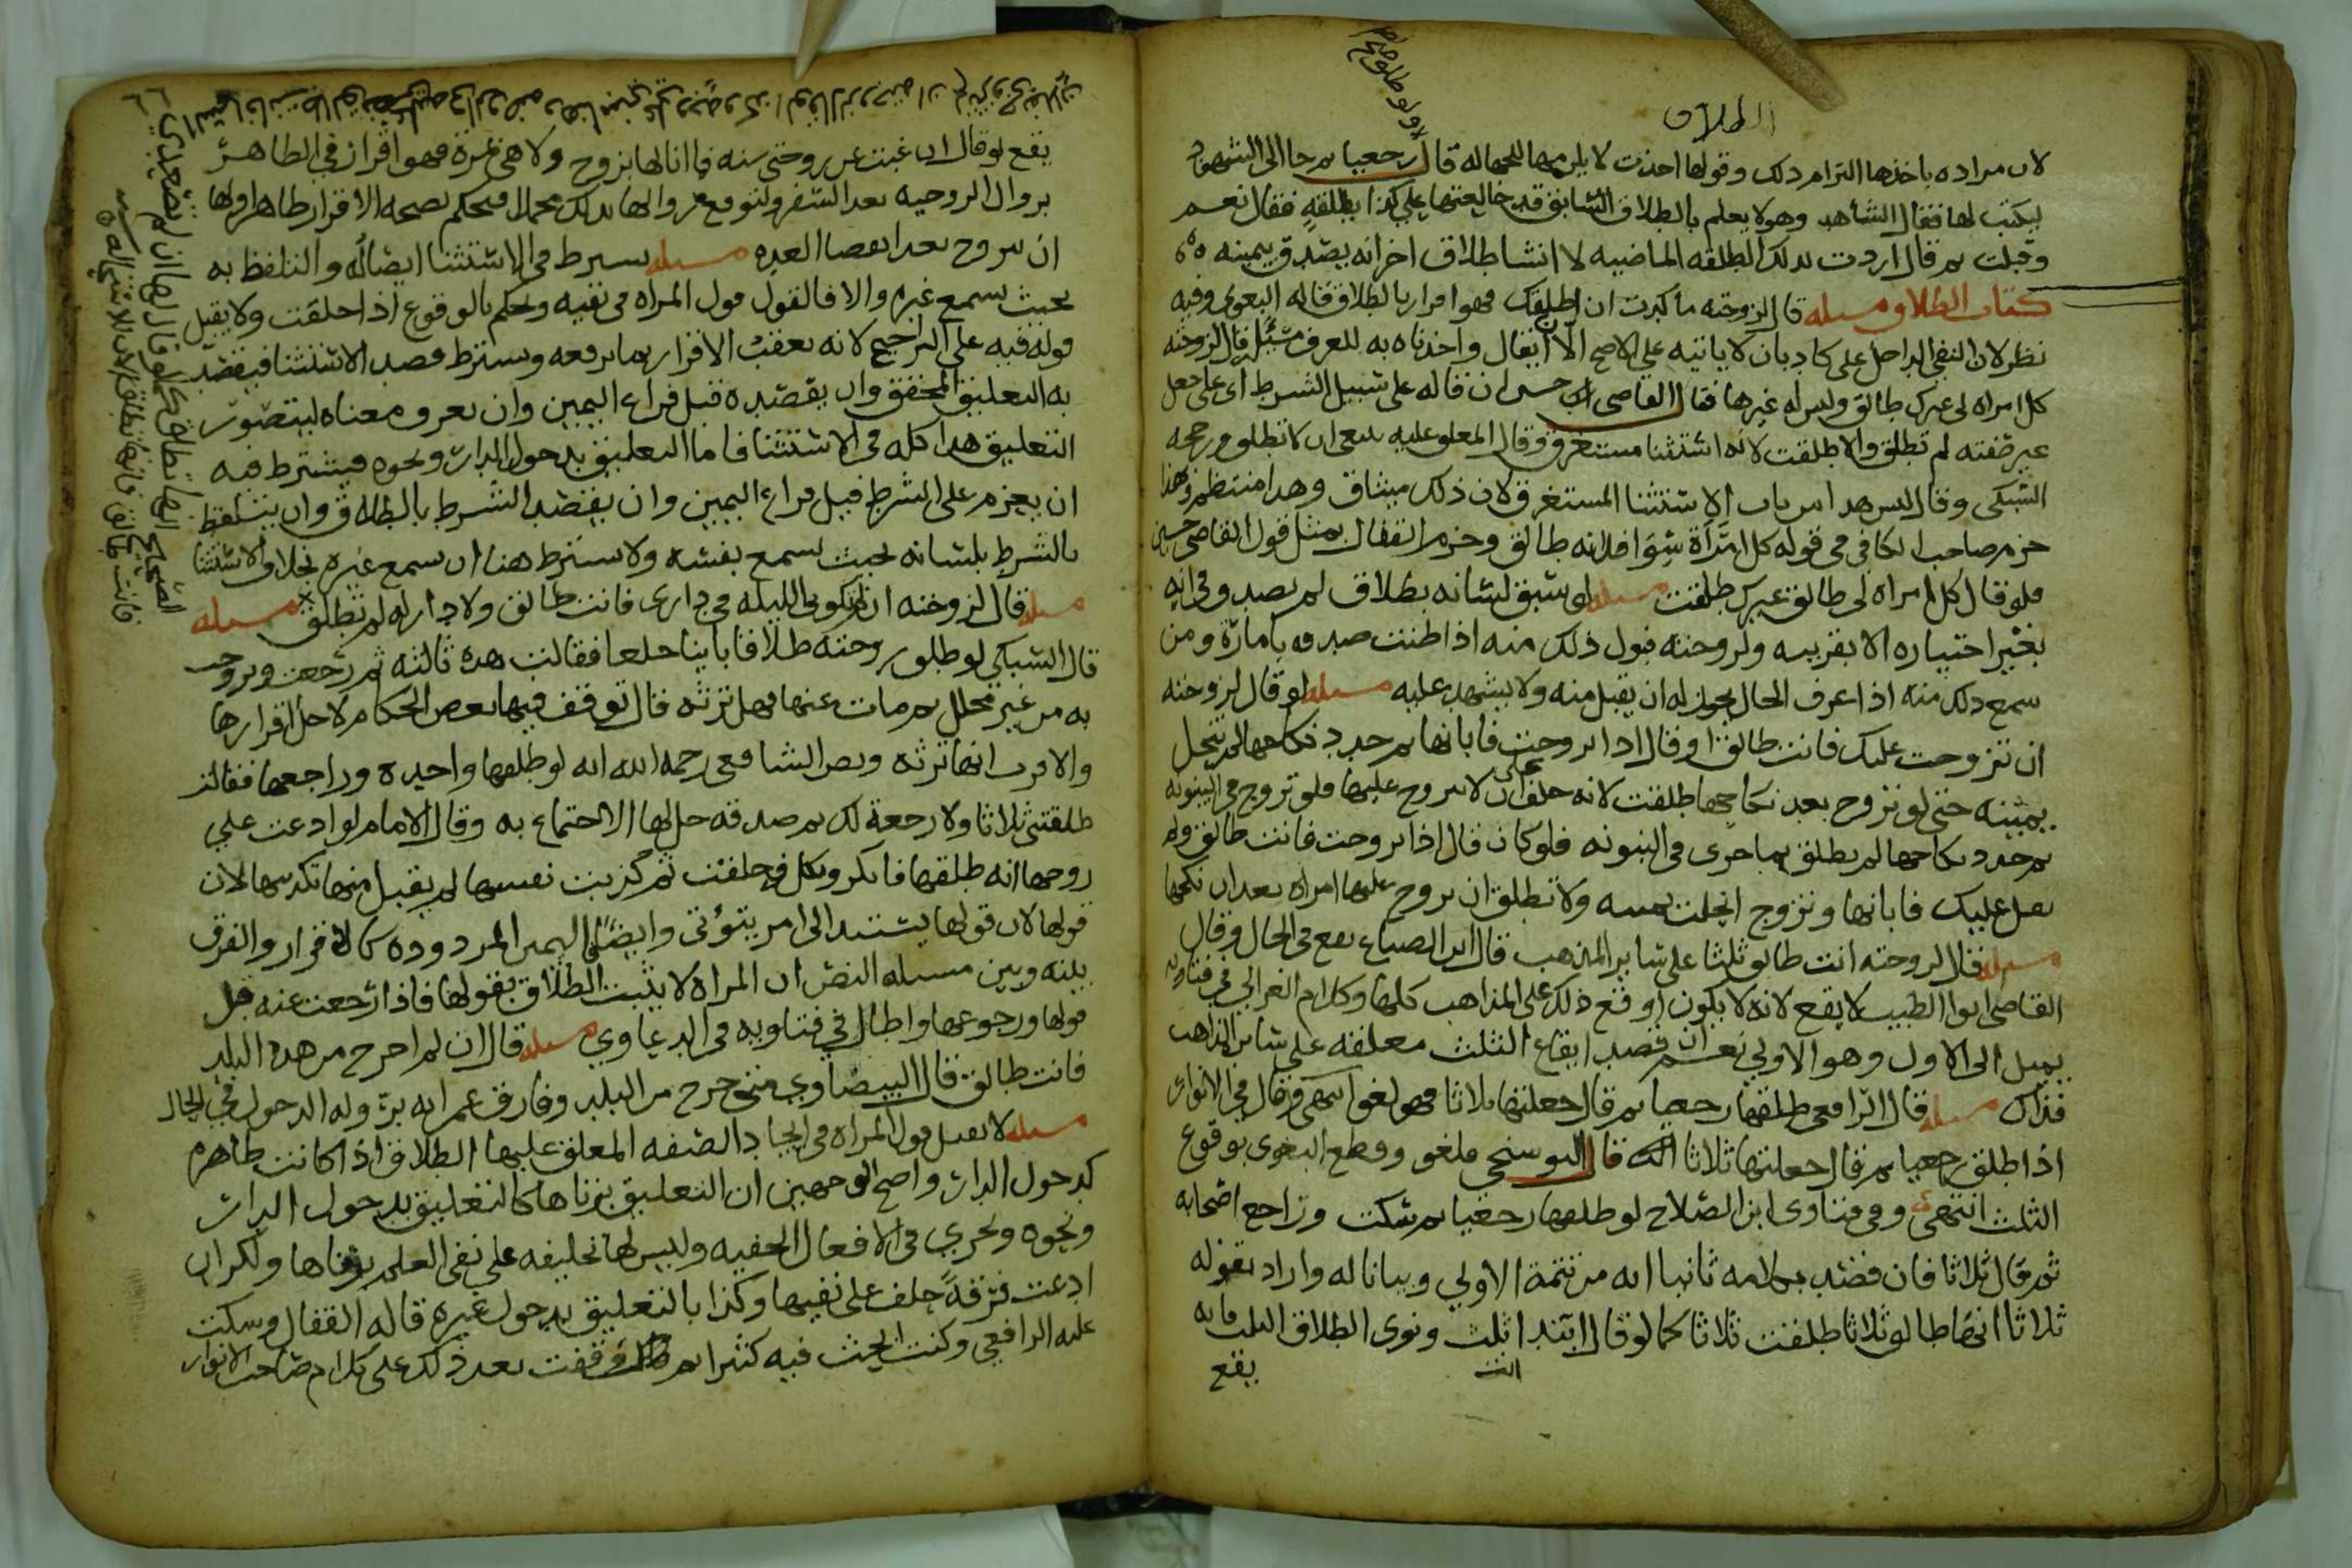 الطلاق
لان مراده باخذها التزام ذلك وقولها اخذت لا يلزمها للجهاله قال رجعيا ثم جا الى الشهود
ليكتب لها فقال الشاهد وهو لا يعلم بالطلاق السابق قد خالعتها علي كذا بطلقه فقال نعم
وقبلت ثم قال اردت بذلك الطلقه الماضيه لا انشا طلاق اخر انه يصدق بيمينه
كتاب الطلاق مسله قال لزوجته ما كدت ان اطلقك فهو اقرار بالطلاق قاله البغوى وفيه
نظر لان النفى الداخل على كاد بان لا ياتيه على الاصح الا ان يقال واخذناه به للعرف مسئله قال لزوجته
كل امراه لى غيرك طالق وليس له غيرها فقال القاضى حسين ان قاله على سبيل الشرط اى على جعل
غير صفته لم تطلق والا طلقت لانه استثنا مستغرق وقال المعلق عليه ينبغى ان لا تطلق ورجحه
السبكى وقال ليس هذا من باب الاستثنا المستغرق لان ذلك ميثاق وهذا منتظم وهذا
جزم صاحب الكافى فى قوله كل امرأة سوا فلانه طالق وجزم القفال بمثل قول القاضى حسين
فلو قال كل امراه لى طالق غيرك طلقت مسله لو سبق لسانه بطلاق لم يصدق فى انه
بغير اختياره الا بقرينه ولزوجته قبول ذلك منه اذا ظنت صدقه بامارة ومن
سمع ذلك منه اذا عرف الحال يجوز له ان يقبل منه ولا يشهد عليه مسله لو قال لزوجته
ان تزوجت عليك فانت طالق او قال اذا تزوجت فابانها ثم جدد نكاحها لم تنحل
يمينه حتى لو تزوج بعد نكاحها طلقت لانه حلف على ان لا يتزوج عليها فلو تزوج فى البينونه
ثم جدد نكاحها لم يطلق بما جرى فى البينونه فلو كان قال اذا تزوجت فانت طالق ولم
يقل عليك فابانها وتزوج انحلت يمينه ولا تطلق ان تزوج عليها امراه بعد ان نكحها
مسله قال لزوجته انت طالق ثلثا على ساير المذهب قال ابن الصباغ يقع فى الحال وقال
القاضى ابوا الطيب لا يقع لانه لا يكون اوقع ذلك على المذاهب كلها وكلام الغزالي في فتاويه
يميل الى الاول وهو الاولي نعم ان قصد ايقاع الثلث معلقه على ساير المذاهب
فذاك مسله قال الرافعى طلقها رجعيا ثم قال جعلتها ثلاثا فهو لغو انتهى وقال فى الانوار
اذا طلق رجعيا ثم قال جعلتها ثلاثا قال البوسنجى ملغو وقطع البغوى بوقوع
الثلث انتهى وفى فتاوى ابن الصلاح لو طلقها رجعيا ثم سكت وراجع اصحابه
ثم قال ثلاثا فان قصد بكلامه ثانيا انه من تتمة الاولي وبيانا له واراد بقوله
ثلاثا انها طالق ثلاثا طلقت ثلاثا كما لو قال ابتدا انت ونوى الطلاق الثلث فانه
يقع
يقع لو قال ان غبت عن زوجتى سنه فاانا لها بزوج ولا هى بمرة فهو اقرار فى الظاهر
بزوال الزوجيه بعد السفر ولتوقع زوالها بذلك محملا فيحكم بصحه الاقرار ظاهرا ولها
ان تتزوج بعد انقضا العده مسله يشترط فى الاستثنا ايضاله والتلفظ به
بحيث يسمع غيره والا فالقول قول المراه فى نفيه وحكم بالوقوع اذا حلفت ولا يقبل
قوله فيه على الترجيح لانه يعقب الاقرار بما يرفعه ويشترط قصد الاستثنا فيقصد
به التعليق المحقق وان يقصده قبل فراغ اليمين وان يعرف معناه ليتصور
التعليق هذا كله فى الاستثنا فاما التعليق بدخول الدار ونحوه فيشترط فيه
ان يعزم على الشرط قبل فراغ اليمين وان يقصد الشرط بالطلاق وان يتلفظ
بالشرط بلسانه بحيث يسمع نفسه ولا يشترط هنا ان يسمع غيره بخلاف الاستثنا
مسله قال لزوجته ان لم تكونى الليله فى دارى فانت طالق ولا دار له لم تطلق مسله
قال السبكى لو طلق زوجته طلاقا باينا خلعا فقالت هذه ثالثه ثم رجعت وتزوجت
به من غير محلل ثم مات عنها فهل ترثه قال توقف فيها بعض الحكام لاجل اقرارها
والاقرب انها ترثه ونص الشافعى رحمه الله انه لو طلقها واحده وراجعها فقالت
طلقتنى ثلاثا ولا رجعة لك ثم صدقه حل لها الاجتماع به وقال الامام لو ادعت علي
زوجها انه طلقها فانكر ونكل فحلفت ثم كذبت نفسها لم يقبل منها تكذيبها لان
قولها لان قولها يستند الى امر يتوثق وايضا فاليمين المردوده كالاقرار والفرق
بينه وبين مسله النص ان المراه لا يثبت الطلاق بقولها فاذا رجعت عنه قبل
قولها ورجوعها واطال في فتاويه فى الدعاوي مسله قال ان لم اخرج من هذا البلد
فانت طالق قال البيضاوي متى خرج من البلد وفارق عمرانه برّ وله الدخول فى الحال
مسله لا يقبل قول المراه فى ايجاد الصفه المعلق عليها الطلاق اذا كانت ظاهره
كدخول الدار واصح الوجهين ان التعليق بزناها كالتعليق بدخول الدار
ونحوه ونجري فى الافعال الخفيه وليس لها تحليفه على نفى العلم بزناها ولكن ان
ادعت فرقةً حلف على نفيها وكذا بالتعليق بدخول غيره قاله القفال وسكت
عليه الرافعي وكنت ابحث فيه كثيرا ثم وقفت بعد ذلك على كلام صاحب الانوار